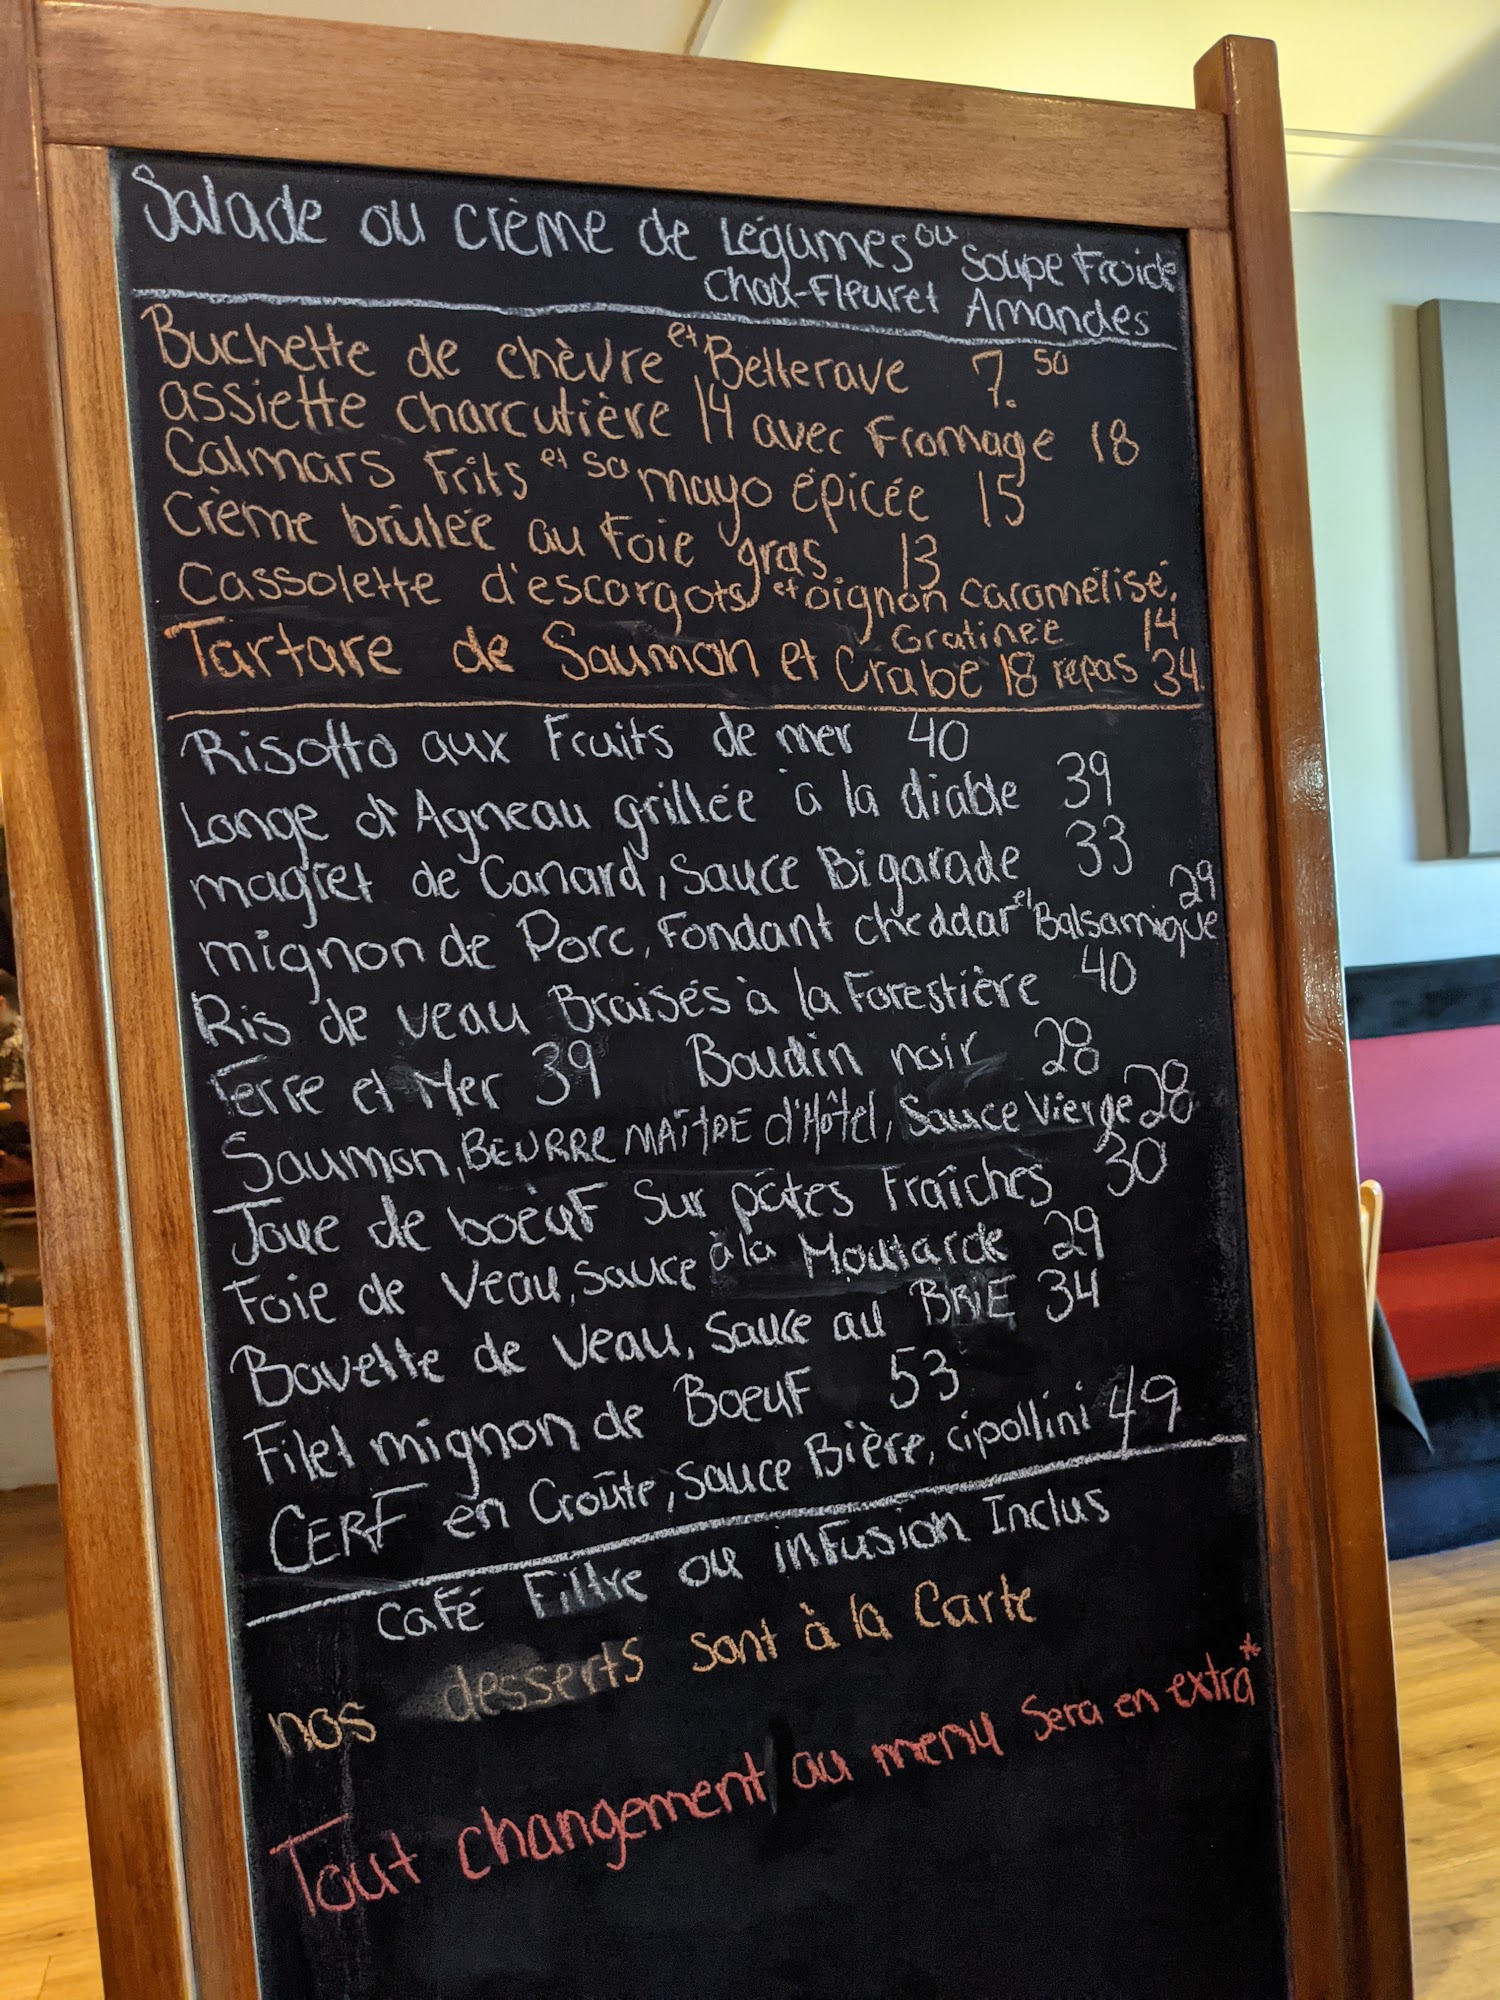 Salade ou crème de Légumes ou Soupe Froide
Choux-Fleur et Amandes
Buchette de chèvre et Betterave 7.50
assiette charcutière 14 avec Fromage 18
Calmars Frits et sa mayo épicée 15
Crème brûlée au Foie gras 13
Cassolette d'escargots et oignon caramélisé,
Gratinée 14
Tartare de Saumon et Crabe 18 repas 34
Risotto aux Fruits de mer 40
Longe d'Agneau grillée à la diable 39
magret de Canard, Sauce Bigarade 33
mignon de Porc, Fondant cheddar et Balsamique 29
Ris de veau Braisés à la Forestière 40
Terre et Mer 39 Boudin noir 28
Saumon, BEURRE MAÎTRE d'Hôtel, Sauce Vierge 28
Joue de boeuf Sur pâtes Fraîches 30
Foie de Veau, Sauce à la Moutarde 29
Bavette de Veau, Sauce au BRIE 34
Filet mignon de Boeuf 53
CERF en Croûte, Sauce Bière, cipollini 49
Café Filtre ou infusion Inclus
nos desserts sont à la Carte
Tout changement au menu Sera en extra*